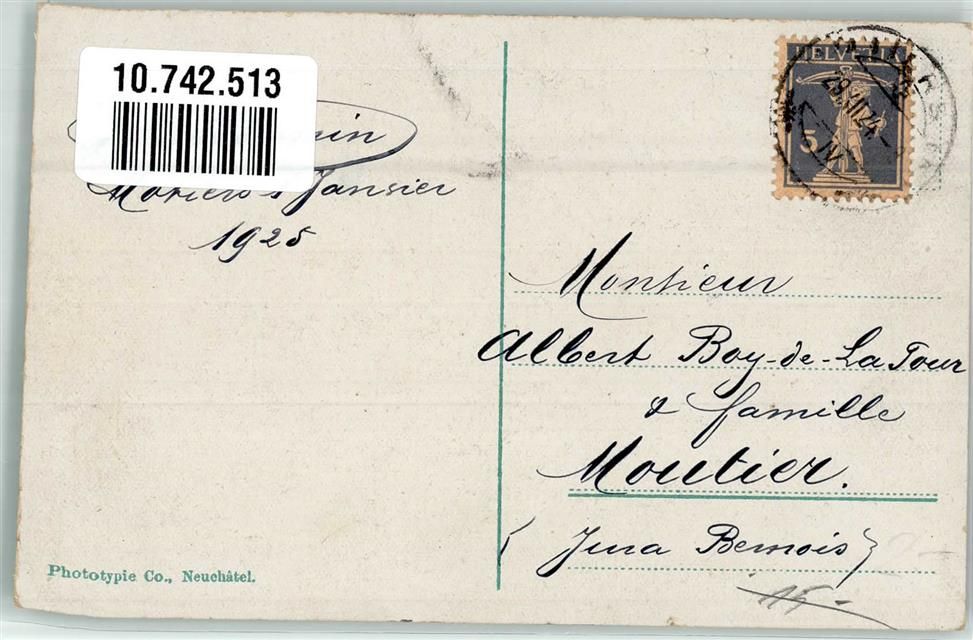 10.742.513
Janvier
1925
HELVETIA
5
29.XII.24.-
IV
Monsieur
Albert Boy-de-La Tour
& famille
Moutier.
(Jura Bernois)
Phototypie Co., Neuchâtel.
15.-